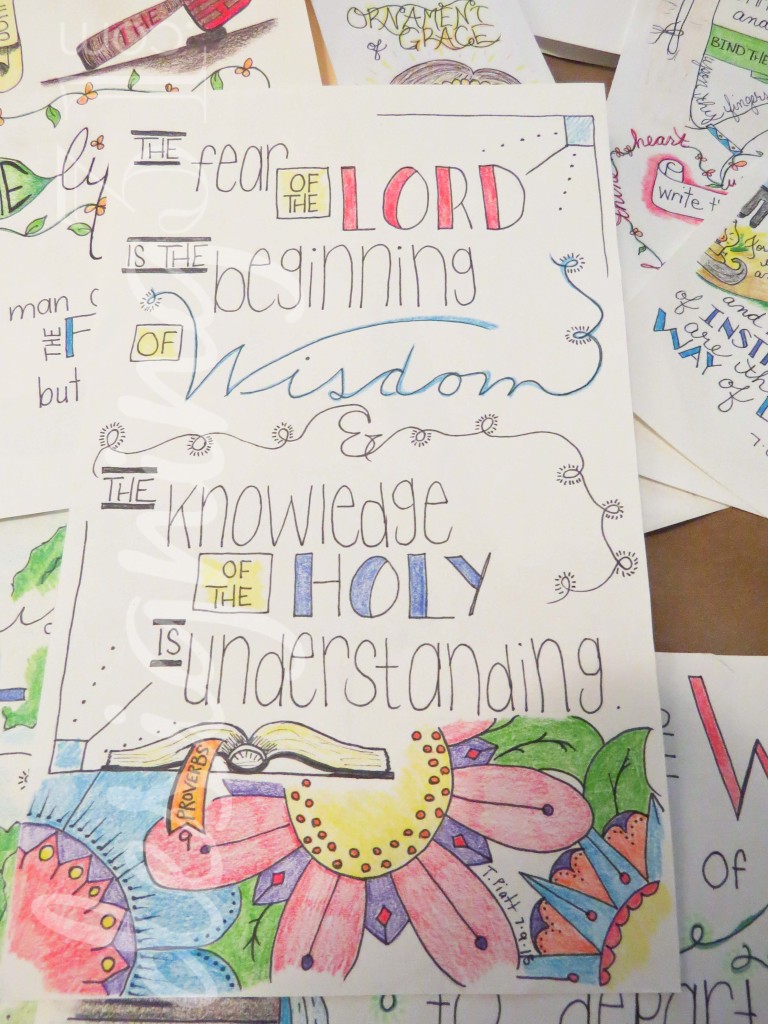 THE
ORNAMENT
of GRACE
and
BIND THE
fingers
heart
write t
ly
THE fear OF THE LORD
IS THE beginning
OF Wisdom
&
THE knowledge
OF THE HOLY
IS understanding.
PROVERBS
9
T. Piatt 7.9.15
man
THE F
but
and
of INST
are the
WAY of
7.
W
of
to depart